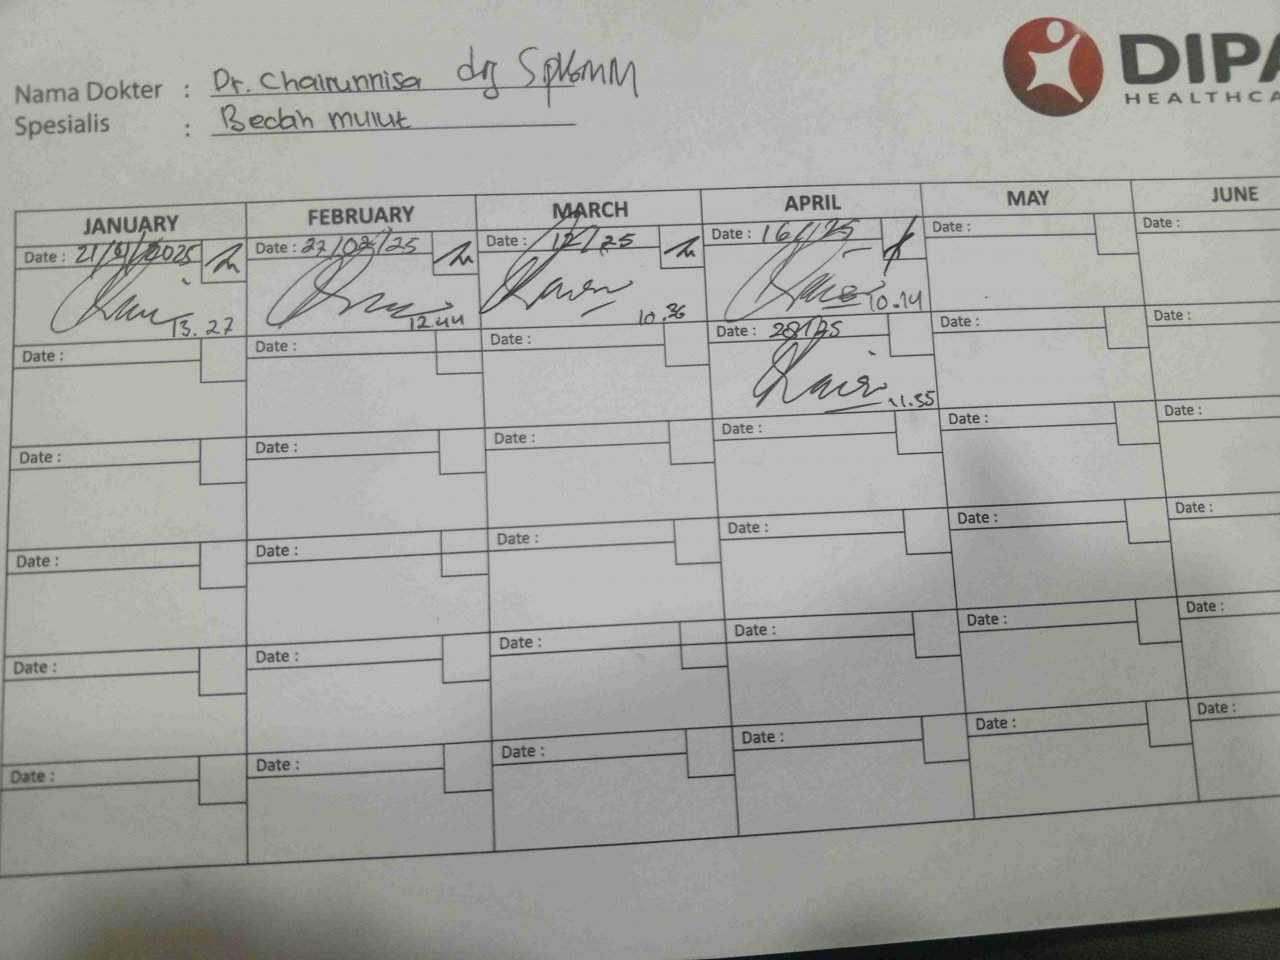 Nama Dokter : Dr. Chairunnisa drg SpKGMM
Spesialis : Bedah mulut
DIPA
HEALTHCA
JANUARY FEBRUARY MARCH APRIL MAY JUNE
Date : 21/ /2025 Date : 27/02/25 Date : 12/ /25 Date : 16/ /25 Date : Date :
13.27 12.44 10.36 10.14
Date : Date : Date : Date : 28/ /25 Date : Date :
11.35
Date : Date : Date : Date : Date : Date :
Date : Date : Date : Date : Date : Date :
Date : Date : Date : Date : Date : Date :
Date : Date : Date : Date : Date : Date :